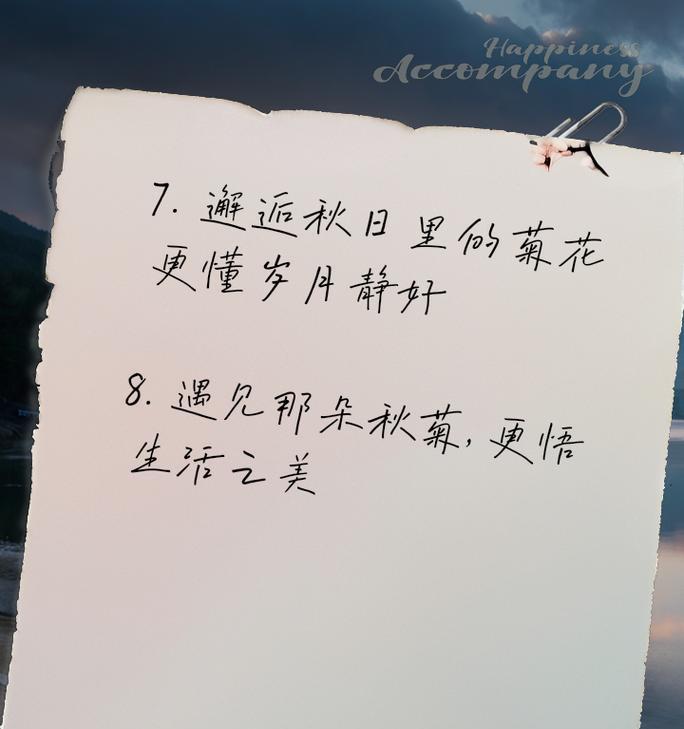 Happiness
Accompany
7. 邂逅秋日里的菊花
更懂岁月静好
8. 遇见那朵秋菊,更悟
生活之美